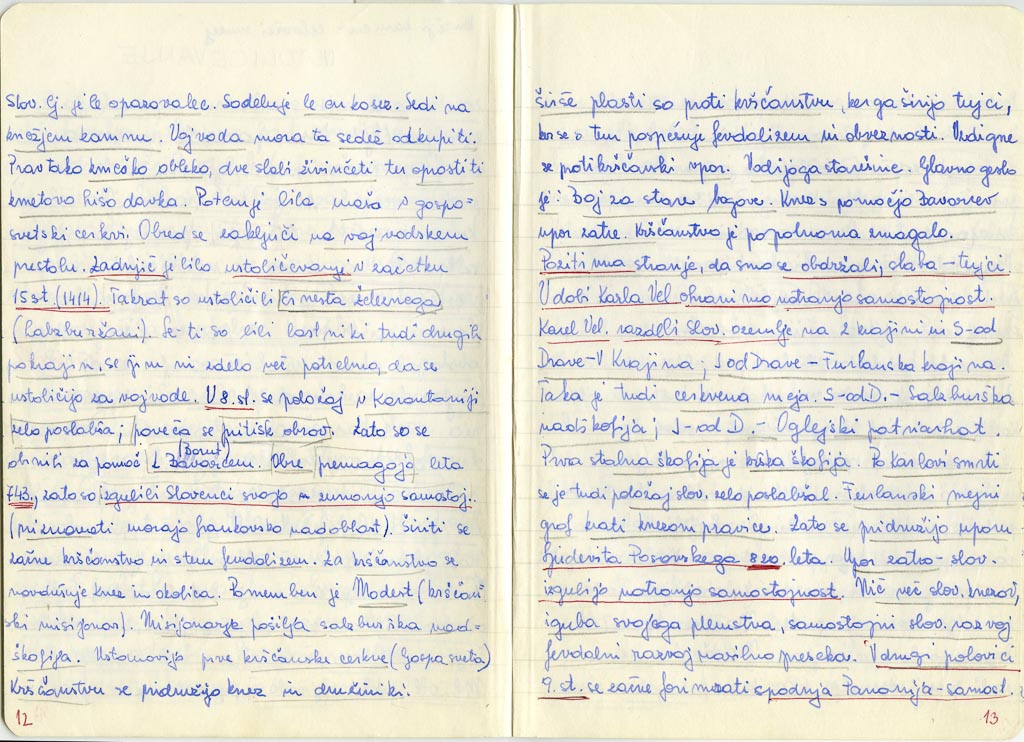 Slov. lj. je le opazovalec. Sodeluje le en kosez. Sedi na
knežjem kamnu. Vojvoda mora ta sedež odkupiti.
Prav tako kmečko obleko, dve slabi živinčeti ter oprostiti
kmetovo hišo davka. Potem je bila maša v gospo-
svetski cerkvi. Obred se zaključi na vojvodskem
prestolu. Zadnjič je bilo ustoličevanje v začetku
15 st. (1414). Takrat so ustoličili Ernesta Železnega
(Habzburžani). Ker ti so bili lastniki tudi drugih
pokrajin, se jim ni zdelo več potrebno, da se
ustoličijo za vojvode. V 8. st. se položaj v Karantaniji
zelo poslabša; poveča se pritisk obrov. Zato so se
(Borut)
obrnili za pomoč k Bavarcem. Obre premagajo leta
743., zato so izgubili Slovenci svojo zunanjo samostoj.
(priznavati morajo frankovsko nadoblast). Širiti se
začne krščanstvo in s tem fevdalizem. Za krščanstvo se
navdušuje knez in okolica. Pomemben je Modest (kršćan-
ski misijonar). Misijonarje pošilja salzburška nad-
škofija. Ustanovijo prve krščanske cerkve (Gospa sveta)
Krščanstvu se pridružijo knez in družiniki.
12
širše plasti so proti krščanstvu, ker ga širijo tujci,
ker se s tem pospešuje fevdalizem in obveznosti. Vzdigne
se protikrščanski upor. Vodijo ga starešine. Glavno geslo
je: Boj za stare bogove. Knez s pomočjo Bavarcev
upor zatre. Krščanstvo je popolnoma zmagalo.
Pozitivna stranje, da smo se obdržali; slaba - tujci.
V dobi Karla Vel. ohranimo notranjo samostojnost.
Karel Vel. razdeli slov. ozemlje na 2 krajini in S-od
Drave-V Krajina; J od Drave - Furlanska krajina.
Taka je tudi cerkvena meja. S-od D. - Salzburška
nadškofija; J-od D. - Oglejski patriarhat.
Prva stalna škofija je krška škofija. Po Karlovi smrti
se je tudi položaj slov. zelo poslabšal. Furlanski mejni
grof krati knezom pravice. Zato se pridružijo uporu
Ljudevita Posavskega 820. leta. Upor zatro - slov.
izgubijo notranjo samostojnost. Nič več slov. knezov,
izguba svojega plemstva, samostojni slov. razvoj
fevdalni razvoj nasilno preseka. V drugi polovici
9. st. se začne formirati spodnja Panonija - samost.
13